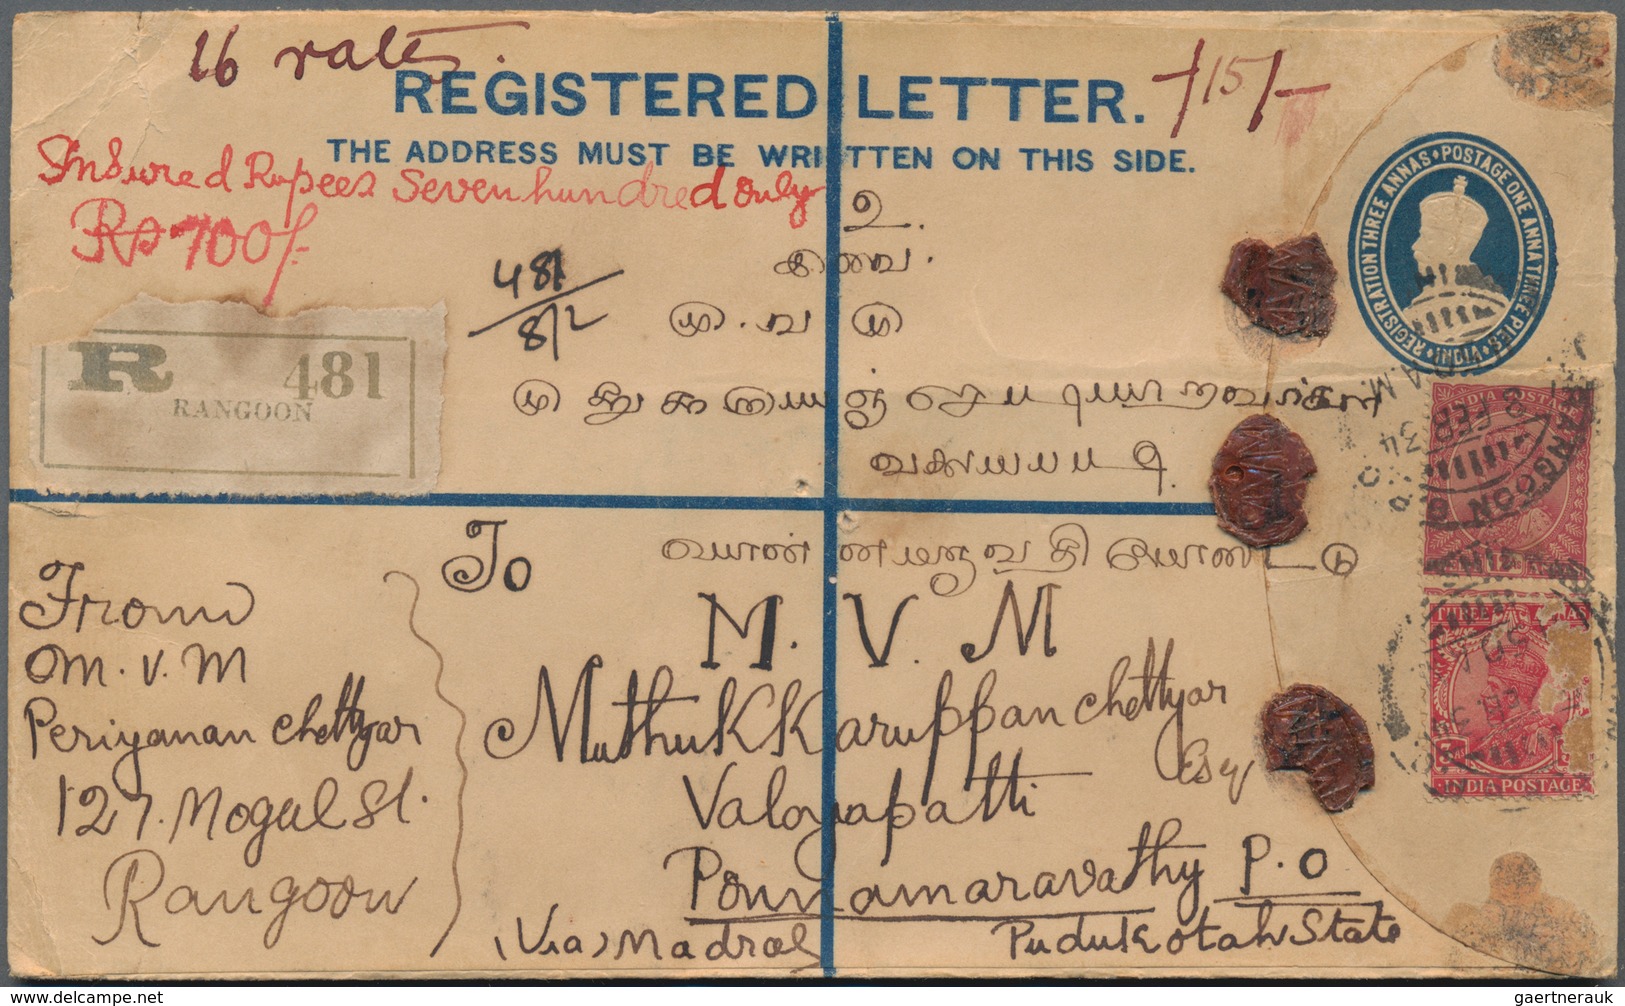 16 rates.
REGISTERED LETTER.
/15/-
THE ADDRESS MUST BE WRITTEN ON THIS SIDE.
Insured Rupees Seven hundred only
Rs 700/-
REGISTRATION THREE ANNAS • POSTAGE ONE ANNA THREE PIES
உ.
481
8/2
மு. வ மு
R 481
RANGOON
INDIA POSTAGE
RANGOON
8 FEB 34
To
From
M. V. M
M. V. M
Periyanan Chettyar
Muthukkaruppan Chettyar
Esq
127. Mogul St.
Valayapatti
Rangoon
Ponnamaravathy P.O
(Via) Madras
Pudukotah State
INDIA POSTAGE
gaertnerauk
delcampe.net